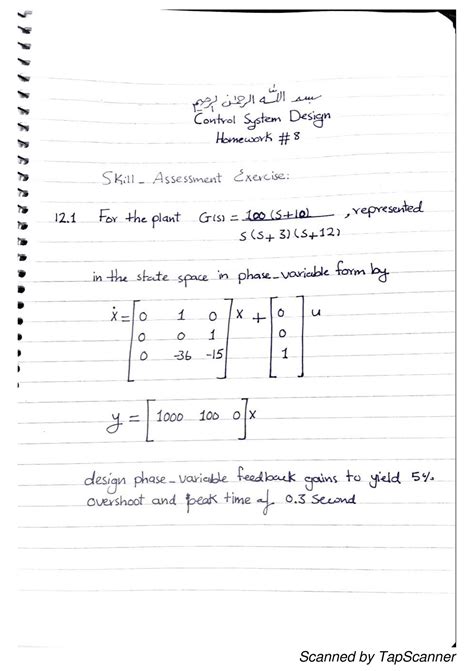 بسم الله الرحمن الرحيم
Control System Design
Homework #8
Skill-Assessment Exercise:
12.1 For the plant G(s) = 100(s+10) / s(s+3)(s+12), represented
in the state space in phase-variable form by
ẋ = [0 1 0; 0 0 1; 0 -36 -15] x + [0; 0; 1] u
y = [1000 100 0] x
design phase-variable feedback gains to yield 5%
overshoot and peak time of 0.3 second
Scanned by TapScanner